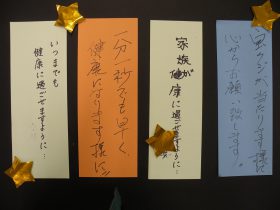 宝クジが当たります様に
心からお願い致します。
家族が
健康に過ごせますように…
一分一秒でも早く、
健康になります様に!!
いつまでも
健康に過ごせますように…